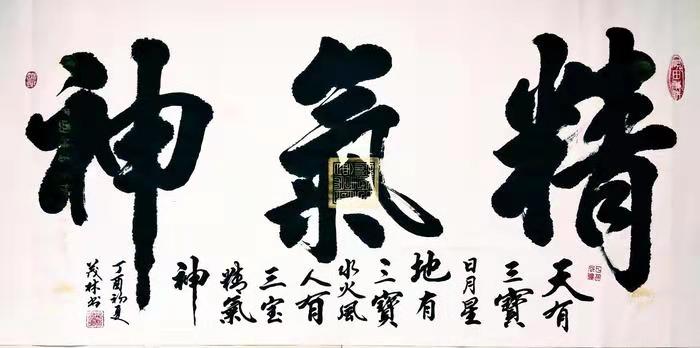 精氣神
天有
三寶
日月星
地有
三寶
水火風
人有
三宝
精氣
神
丁酉初夏
茂林书